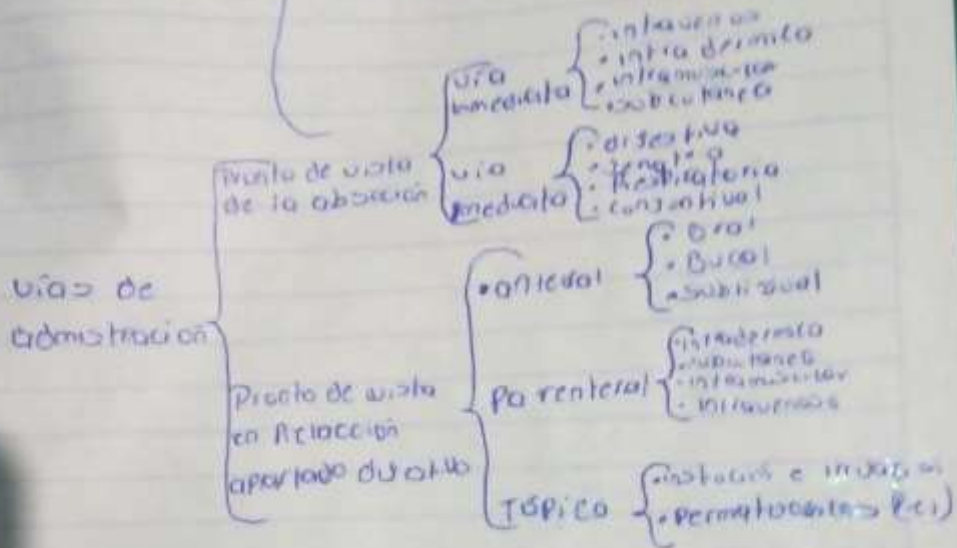 vías de
admistración
Pronto de vista
de la absoción
vía
inmediata
intravenos
intra dermica
intramuscular
subcutanea
vía
mediata
digestiva
Respiratoria
conjontival
Pronto de vista
en Relacción
apartado
anteral
Oral
Bucal
sublizual
Parenteral
intradermica
subcutanea
intramuscular
intravenosa
Tópico
e